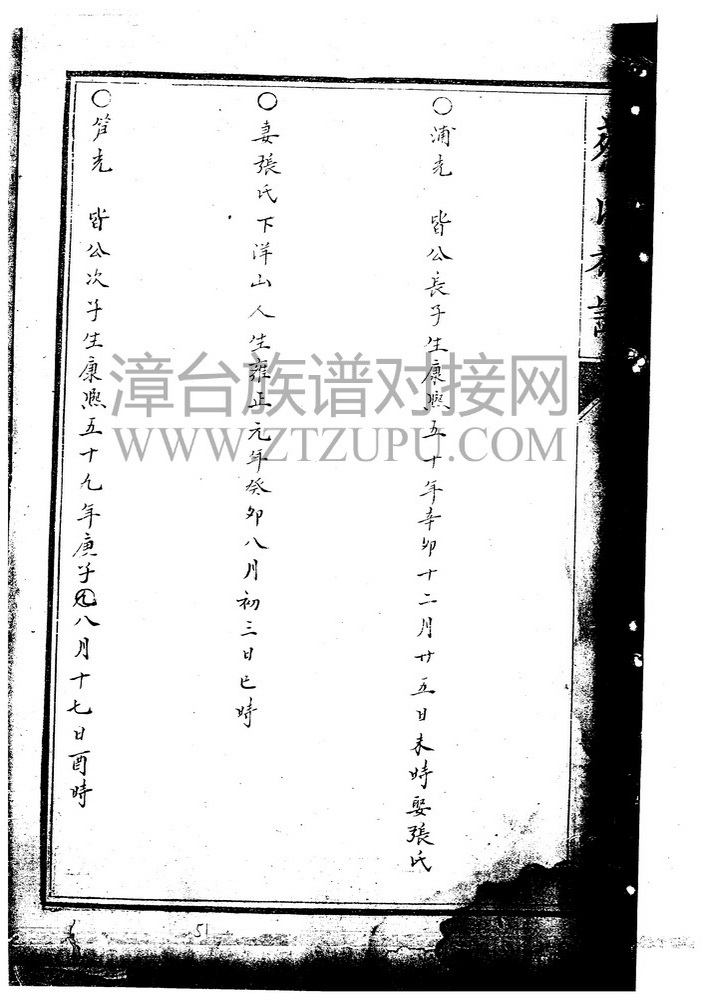 ○浦光 皆公長子生康熙五十年辛卯十二月廿五日未時娶張氏
○妻張氏下洋山人生雍正元年癸卯八月初三日巳時
○ 皆公次子生康熙五十九年庚子八月十七日酉時
漳台族谱对接网
WWW.ZTZUPU.COM
51